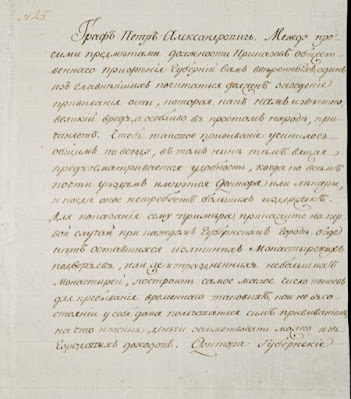 № 25
Графъ Петръ Александровичь. Между про-
чими предметами должности Приказовъ общест-
веннаго призрѣнія Губерній вамъ ввѣренныхъ, одинъ
изъ главнѣйшихъ почитаться долженъ заведеніе
прививанія оспы, которая, какъ всемъ извѣстно,
великій вредъ, а особливо въ простомъ народѣ, при-
чиняетъ. Чтобъ таковое прививаніе учинилося
общимъ повсюду, въ томъ нынѣ тѣмъ вящая
предусматривается удобность, когда по всѣмъ
почти уѣздамъ имѣются Доктора или лѣкари,
и когда оное не требуетъ большихъ издержекъ.
Для показанія сему примѣра, прикажите на пер-
вой случай при каждомъ Губернскомъ Городѣ, обде
нить оставшихся излишнихъ Монастырскихъ
подворьевъ, или изъ упраздненныхъ небольшихъ
Монастырей, построить самое малое число покоевъ
для пребыванія временнаго таковыхъ, кои не въ со-
стояніи у себя дома пользоваться симъ прививаніемъ;
на что нужныя деньги заимствовать можно изъ
Городовыхъ доходовъ. Доктора Губернскіе